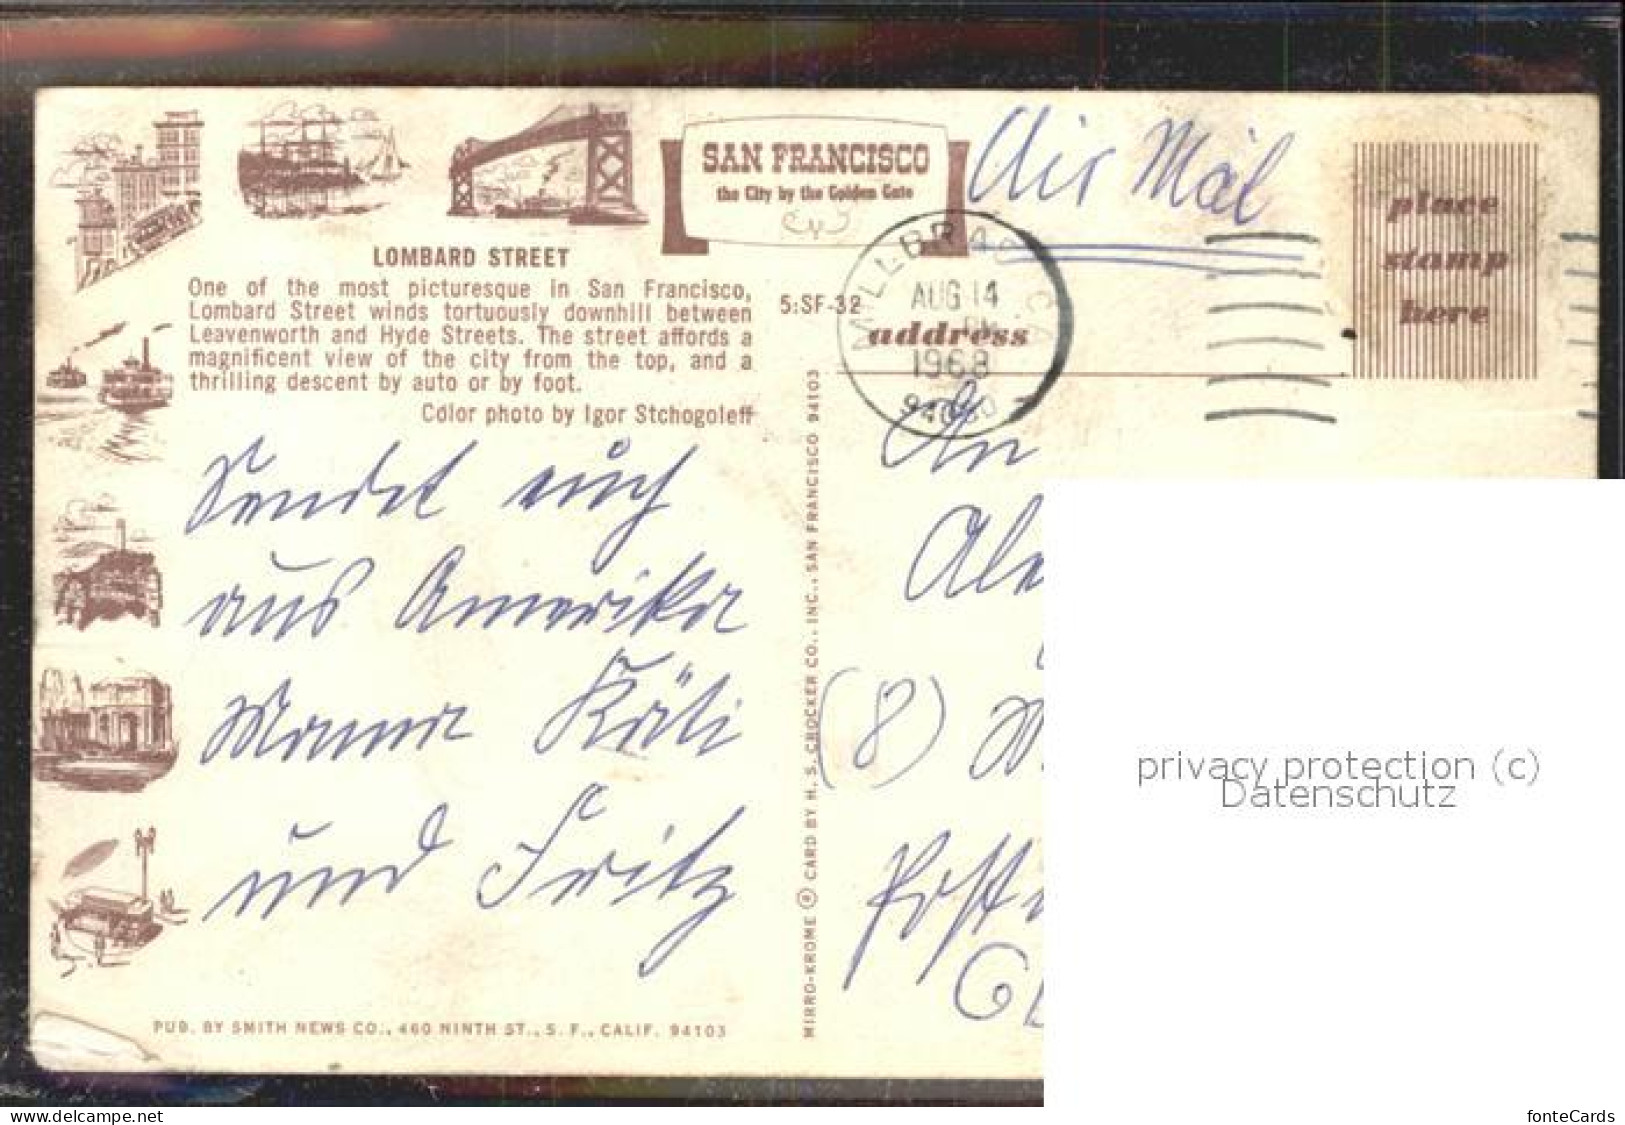 SAN FRANCISCO
the City by the Golden Gate
Air Mail
place
stamp
here
LOMBARD STREET
One of the most picturesque in San Francisco,
Lombard Street winds tortuously downhill between
Leavenworth and Hyde Streets. The street affords a
magnificent view of the city from the top, and a
thrilling descent by auto or by foot.
Color photo by Igor Stchogoleff
5:SF-32
MILLBRAE CA
AUG 14
PM
1968
94030
address
Sendet euch
aus Amerika
Mama Käti
und Fritz
An
Ale
(8)
Post
Gl
MIRRO-KROME ® CARD BY H. S. CROCKER CO., INC., SAN FRANCISCO 94103
PUB. BY SMITH NEWS CO., 460 NINTH ST., S. F., CALIF. 94103
privacy protection (c)
Datenschutz
www.delcampe.net
fonteCards